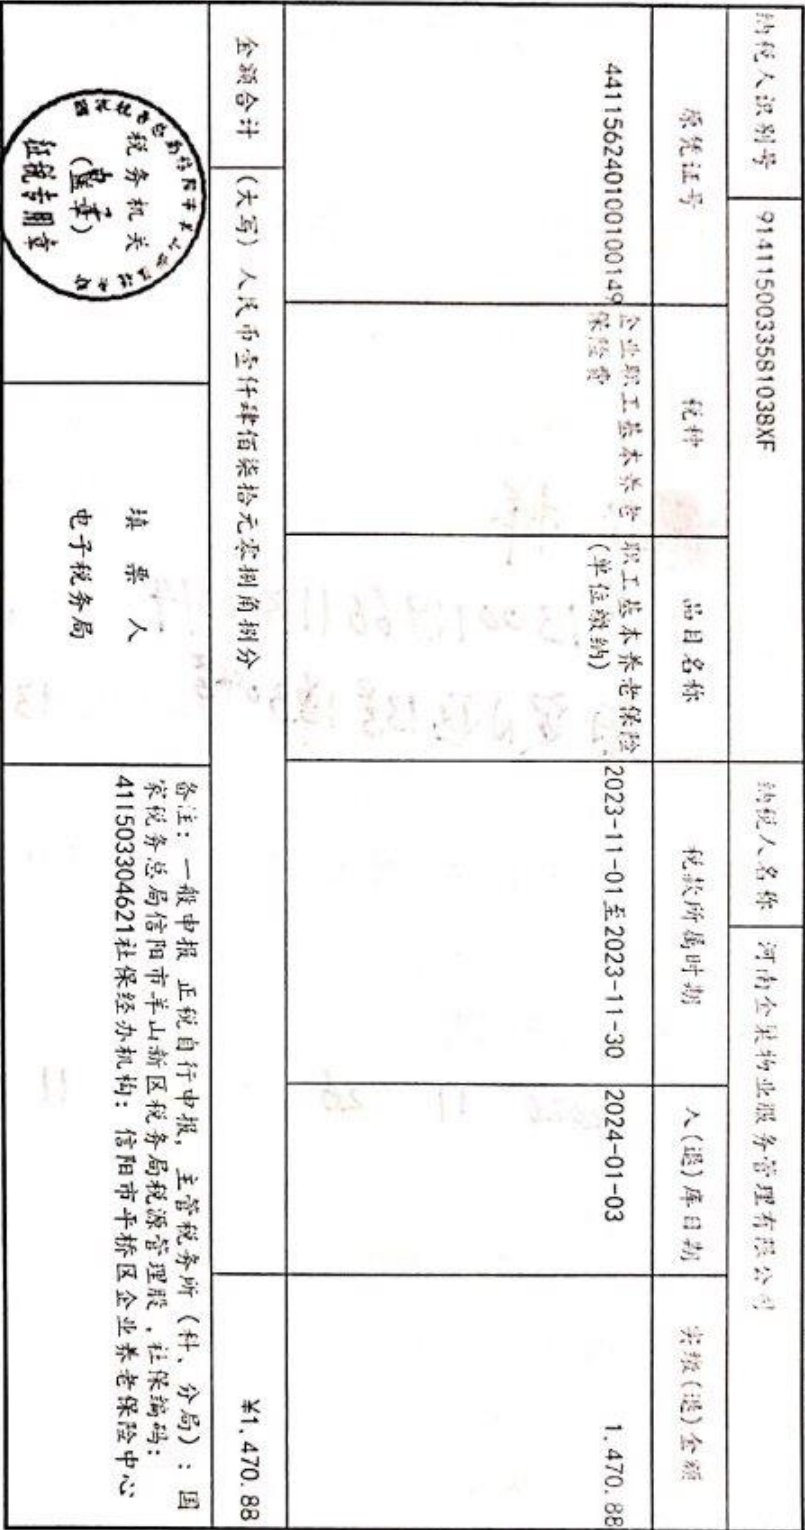 纳税人识别号 91411500335810338XF 纳税人名称 河南金昊物业服务管理有限公司
原凭证号 税种 品目名称 税款所属时期 入(退)库日期 实缴(退)金额
441156240100100149 企业职工基本养老 职工基本养老保险 2023-11-01至2023-11-30 2024-01-03 1,470.88
保险费 (单位缴纳)
金额合计 (大写) 人民币壹仟肆佰柒拾元零捌角捌分 ¥1,470.88
税务机关
(盖章)
征税专用章
填票人
电子税务局
备注: 一般申报 正税自行申报, 主管税务所(科、分局): 国
家税务总局信阳市羊山新区税务局税源管理股, 社保编码:
411503304621社保经办机构: 信阳市平桥区企业养老保险中心